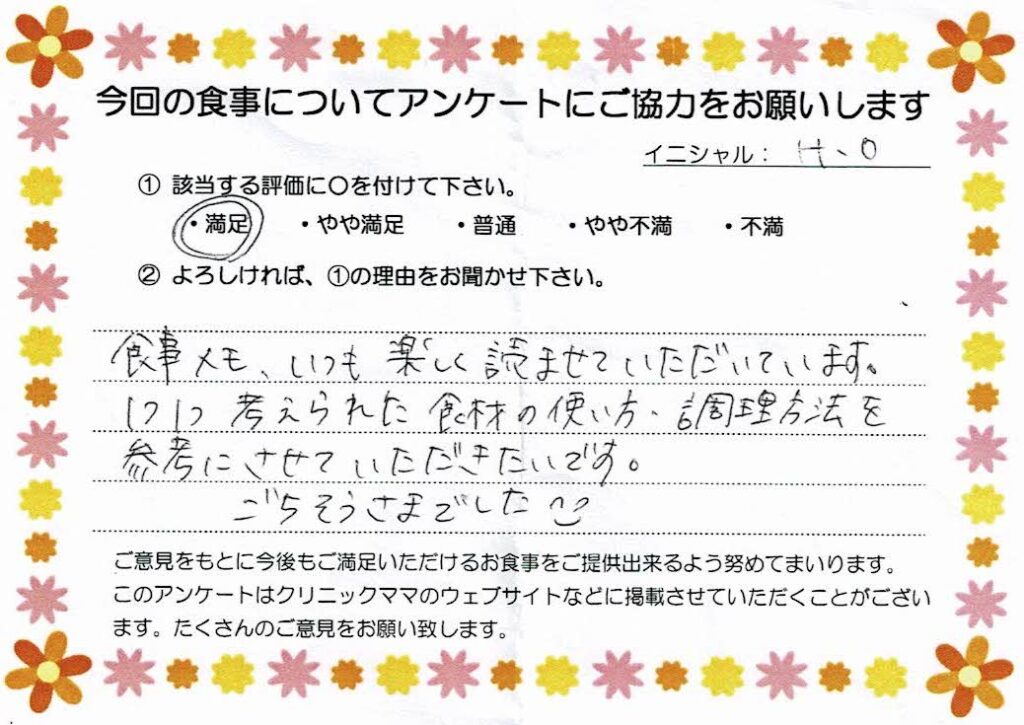 今回の食事についてアンケートにご協力をお願いします
イニシャル： H、O
① 該当する評価に〇を付けて下さい。
・満足 ・やや満足 ・普通 ・やや不満 ・不満
② よろしければ、①の理由をお聞かせ下さい。
食事メモ、いつも楽しく読ませていただいています。
1つ1つ考えられた食材の使い方・調理方法を
参考にさせていただきたいです。
ごちそうさまでした
ご意見をもとに今後もご満足いただけるお食事をご提供出来るよう努めてまいります。
このアンケートはクリニックママのウェブサイトなどに掲載させていただくことがござい
ます。たくさんのご意見をお願い致します。